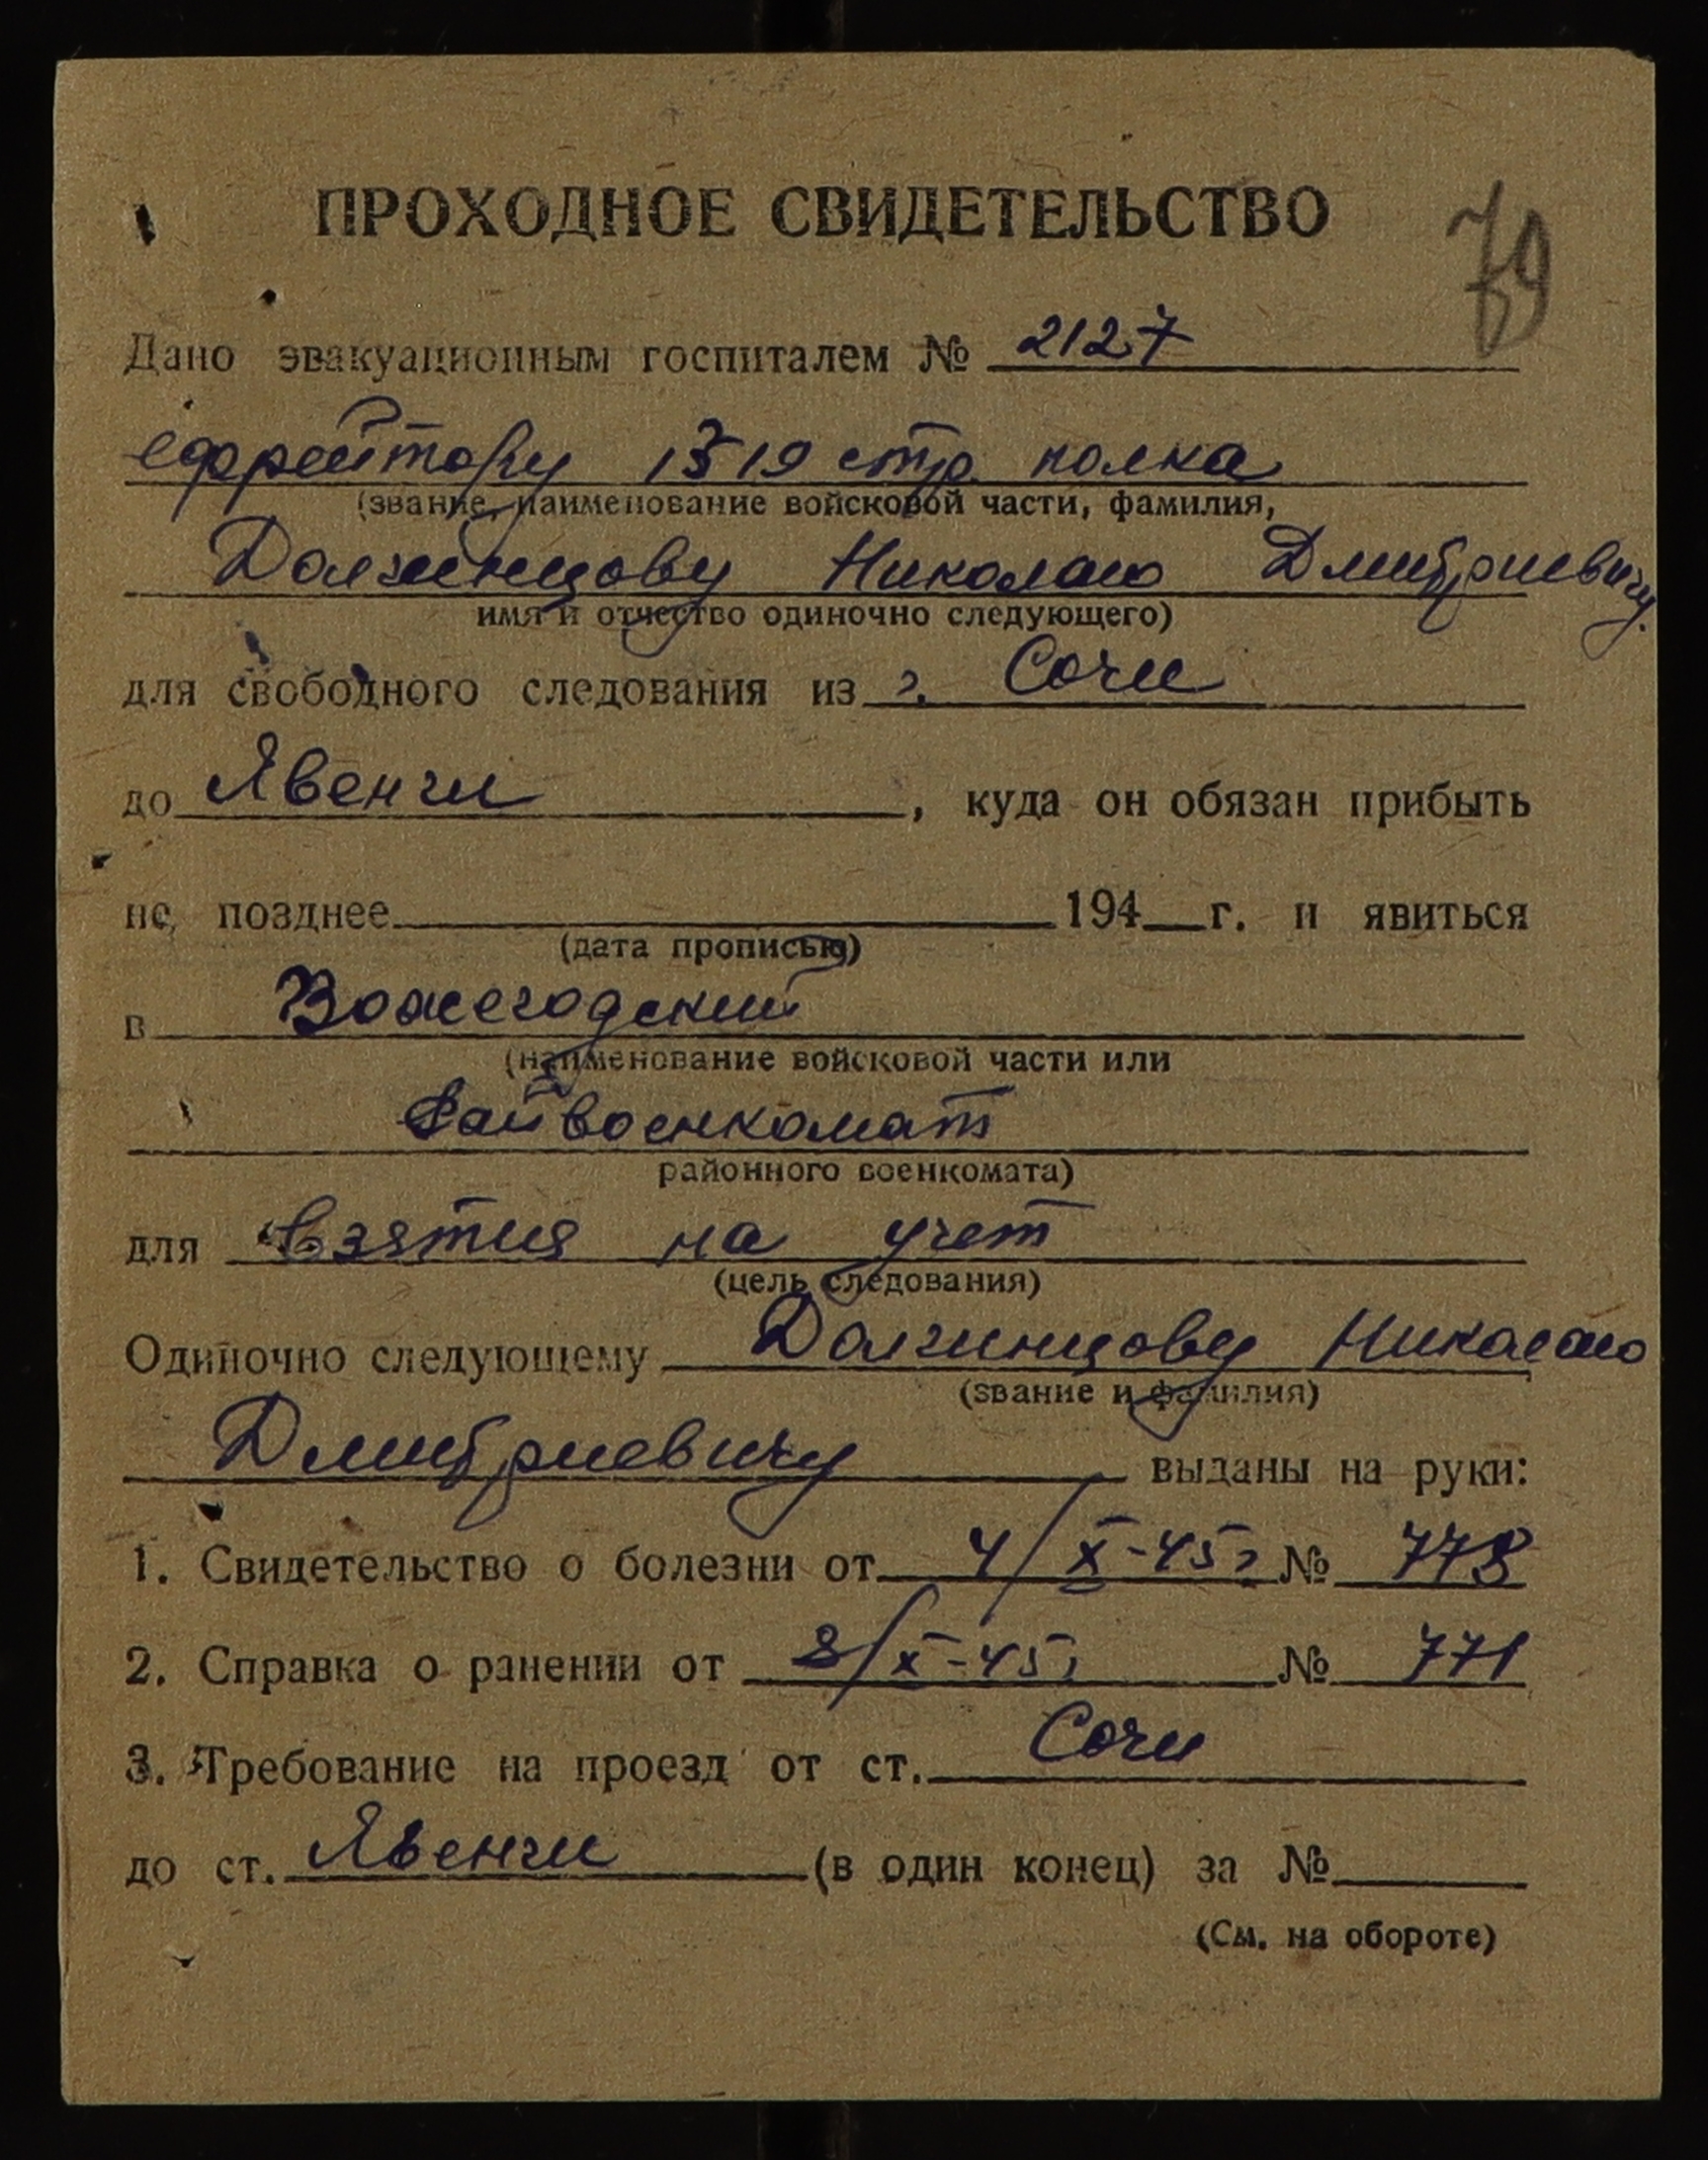 ПРОХОДНОЕ СВИДЕТЕЛЬСТВО
79
Дано эвакуационным госпиталем № 2127
ефрейтору 1319 стр. полка
(звание, наименование войсковой части, фамилия,
Долгинцову Николаю Дмитриевичу.
имя и отчество одиночно следующего)
для свободного следования из г. Сочи
до Явенги, куда он обязан прибыть
не позднее 194 г. и явиться
(дата прописью)
в Вожегодский
(наименование войсковой части или
Райвоенкомат
районного военкомата)
для взятия на учет
(цель следования)
Одиночно следующему Долгинцову Николаю
(звание и фамилия)
Дмитриевичу выданы на руки:
1. Свидетельство о болезни от 4/X-45г № 778
2. Справка о ранении от 8/X-45г № 771
3. Требование на проезд от ст. Сочи
до ст. Явенги (в один конец) за №
(См. на обороте)